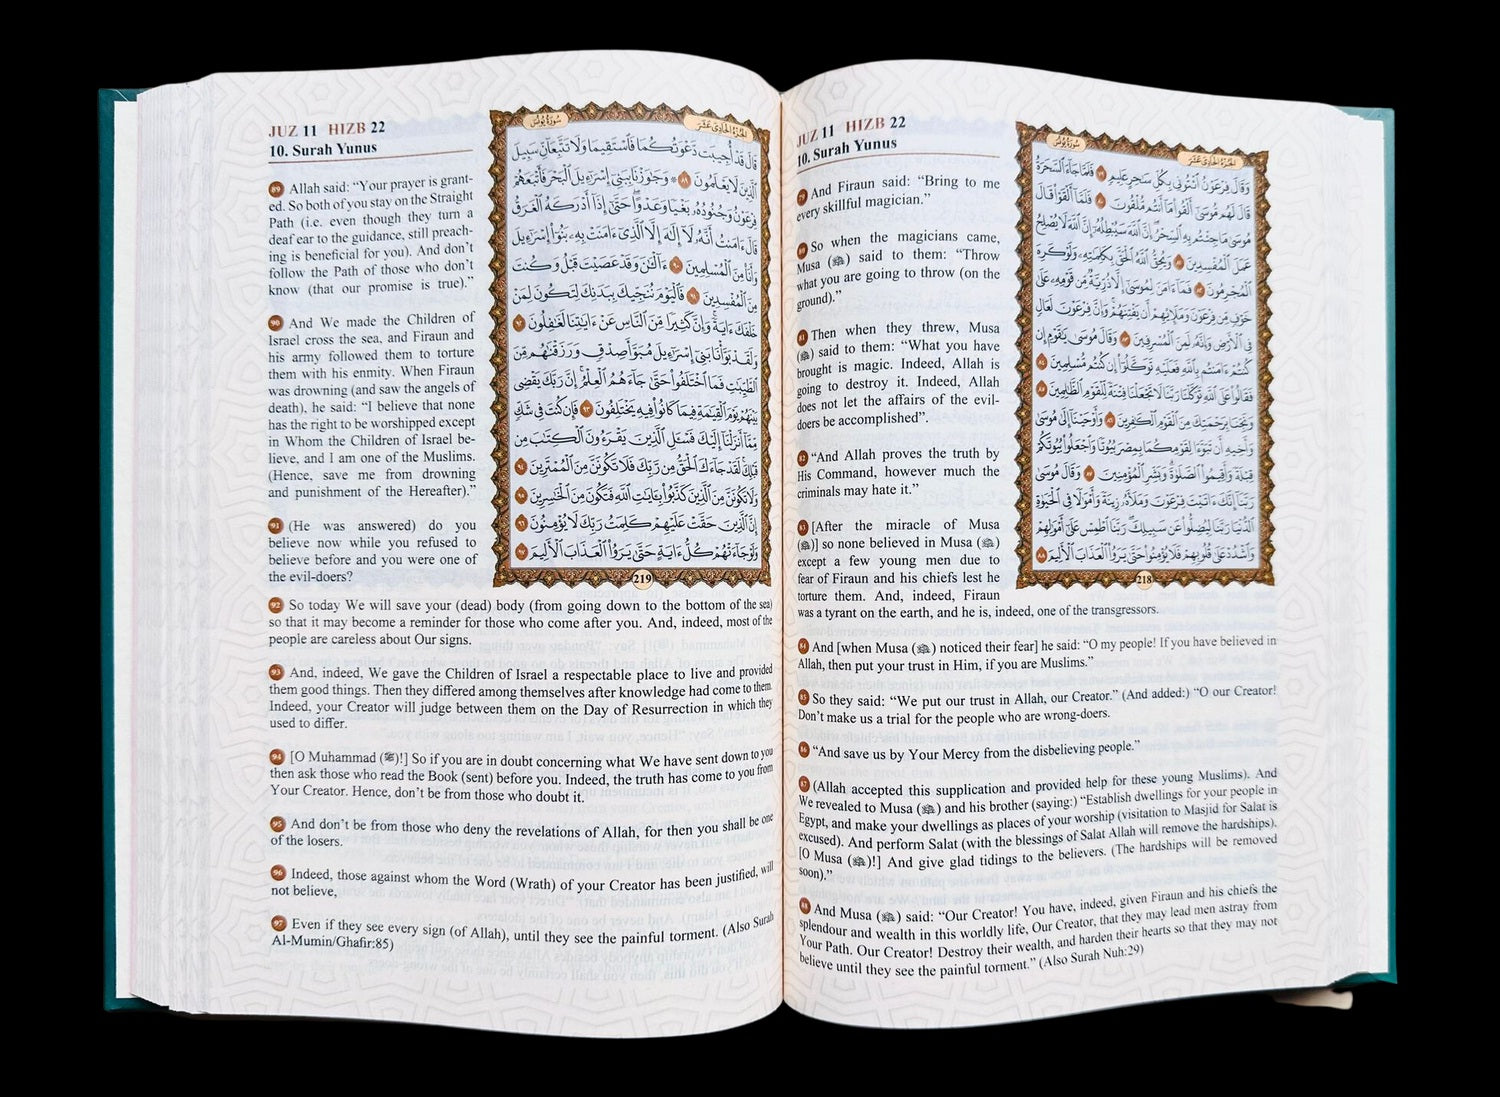 JUZ 11 HIZB 22
10. Surah Yunus
سُورَةُ يُونُسَ
الجُزْءُ الحَادِي عَشَرَ
وَقَالَ فِرْعَوْنُ ٱئْتُونِي بِكُلِّ سَٰحِرٍ عَلِيمٍ ٧٩ فَلَمَّا جَآءَ ٱلسَّحَرَةُ
قَالَ لَهُم مُّوسَىٰٓ أَلْقُوا۟ مَآ أَنتُم مُّلْقُونَ ٨٠ فَلَمَّآ أَلْقَوْا۟ قَالَ
مُوسَىٰ مَا جِئْتُم بِهِ ٱلسِّحْرُ إِنَّ ٱللَّهَ سَيُبْطِلُهُۥٓ إِنَّ ٱللَّهَ لَا يُصْلِحُ
عَمَلَ ٱلْمُفْسِدِينَ ٨١ وَيُحِقُّ ٱللَّهُ ٱلْحَقَّ بِكَلِمَٰتِهِۦ وَلَوْ كَرِهَ
ٱلْمُجْرِمُونَ ٨٢ فَمَآ ءَامَنَ لِمُوسَىٰٓ إِلَّا ذُرِّيَّةٌ مِّن قَوْمِهِۦ عَلَىٰ
خَوْفٍ مِّن فِرْعَوْنَ وَمَلَإِي۟هِمْ أَن يَفْتِنَهُمْ وَإِنَّ فِرْعَوْنَ لَعَالٍ
فِي ٱلْأَرْضِ وَإِنَّهُۥ لَمِنَ ٱلْمُسْرِفِينَ ٨٣ وَقَالَ مُوسَىٰ يَٰقَوْمِ إِن
كُنتُمْ ءَامَنتُم بِٱللَّهِ فَعَلَيْهِ تَوَكَّلُوٓا۟ إِن كُنتُم مُّسْلِمِينَ ٨٤
فَقَالُوا۟ عَلَى ٱللَّهِ تَوَكَّلْنَا رَبَّنَا لَا تَجْعَلْنَا فِتْنَةً لِّلْقَوْمِ ٱلظَّٰلِمِينَ ٨٥
وَنَجِّنَا بِرَحْمَتِكَ مِنَ ٱلْقَوْمِ ٱلْكَٰفِرِينَ ٨٦ وَأَوْحَيْنَآ إِلَىٰ مُوسَىٰ
وَأَخِيهِ أَن تَبَوَّءَا لِقَوْمِكُمَا بِمِصْرَ بُيُوتًا وَٱجْعَلُوا۟ بُيُوتَكُمْ
قِبْلَةً وَأَقِيمُوا۟ ٱلصَّلَوٰةَ وَبَشِّرِ ٱلْمُؤْمِنِينَ ٨٧ وَقَالَ مُوسَىٰ
رَبَّنَآ إِنَّكَ ءَاتَيْتَ فِرْعَوْنَ وَمَلَأَهُۥ زِينَةً وَأَمْوَٰلًا فِي ٱلْحَيَوٰةِ
ٱلدُّنْيَا رَبَّنَا لِيُضِلُّوا۟ عَن سَبِيلِكَ رَبَّنَا ٱطْمِسْ عَلَىٰٓ أَمْوَٰلِهِمْ
وَٱشْدُدْ عَلَىٰ قُلُوبِهِمْ فَلَا يُؤْمِنُوا۟ حَتَّىٰ يَرَوُا۟ ٱلْعَذَابَ ٱلْأَلِيمَ ٨٨
218
79 And Firaun said: “Bring to me
every skillful magician.”
80 So when the magicians came,
Musa (ﷺ) said to them: “Throw
what you are going to throw (on the
ground).”
81 Then when they threw, Musa
(ﷺ) said to them: “What you have
brought is magic. Indeed, Allah is
going to destroy it. Indeed, Allah
does not let the affairs of the evil-
doers be accomplished”.
82 “And Allah proves the truth by
His Command, however much the
criminals may hate it.”
83 [After the miracle of Musa
(ﷺ)] so none believed in Musa (ﷺ)
except a few young men due to
fear of Firaun and his chiefs lest he
torture them. And, indeed, Firaun
was a tyrant on the earth, and he is, indeed, one of the transgressors.
84 And [when Musa (ﷺ) noticed their fear] he said: “O my people! If you have believed in
Allah, then put your trust in Him, if you are Muslims.”
85 So they said: “We put our trust in Allah, our Creator.” (And added:) “O our Creator!
Don’t make us a trial for the people who are wrong-doers.
86 “And save us by Your Mercy from the disbelieving people.”
87 (Allah accepted this supplication and provided help for these young Muslims). And
We revealed to Musa (ﷺ) and his brother (saying:) “Establish dwellings for your people in
Egypt, and make your dwellings as places of your worship (visitation to Masjid for Salat is
excused). And perform Salat (with the blessings of Salat Allah will remove the hardships).
[O Musa (ﷺ)!] And give glad tidings to the believers. (The hardships will be removed
soon).”
88 And Musa (ﷺ) said: “Our Creator! You have, indeed, given Firaun and his chiefs the
splendour and wealth in this worldly life, Our Creator, that they may lead men astray from
Your Path. Our Creator! Destroy their wealth, and harden their hearts so that they may not
believe until they see the painful torment.” (Also Surah Nuh:29)
JUZ 11 HIZB 22
10. Surah Yunus
سُورَةُ يُونُسَ
الجُزْءُ الحَادِي عَشَرَ
قَالَ قَدْ أُجِيبَت دَّعْوَتُكُمَا فَٱسْتَقِيمَا وَلَا تَتَّبِعَآنِّ سَبِيلَ
ٱلَّذِينَ لَا يَعْلَمُونَ ٨٩ ۞ وَجَٰوَزْنَا بِبَنِيٓ إِسْرَٰٓءِيلَ ٱلْبَحْرَ فَأَتْبَعَهُمْ
فِرْعَوْنُ وَجُنُودُهُۥ بَغْيًا وَعَدْوًا حَتَّىٰٓ إِذَآ أَدْرَكَهُ ٱلْغَرَقُ
قَالَ ءَامَنتُ أَنَّهُۥ لَآ إِلَٰهَ إِلَّا ٱلَّذِيٓ ءَامَنَتْ بِهِۦ بَنُوٓا۟ إِسْرَٰٓءِيلَ
وَأَنَا۠ مِنَ ٱلْمُسْلِمِينَ ٩٠ ءَآلْـَٰٔنَ وَقَدْ عَصَيْتَ قَبْلُ وَكُنتَ
مِنَ ٱلْمُفْسِدِينَ ٩١ فَٱلْيَوْمَ نُنَجِّيكَ بِبَدَنِكَ لِتَكُونَ لِمَنْ
خَلْفَكَ ءَايَةً وَإِنَّ كَثِيرًا مِّنَ ٱلنَّاسِ عَنْ ءَايَٰتِنَا لَغَٰفِلُونَ ٩٢
وَلَقَدْ بَوَّأْنَا بَنِيٓ إِسْرَٰٓءِيلَ مُبَوَّأَ صِدْقٍ وَرَزَقْنَٰهُم مِّنَ
ٱلطَّيِّبَٰتِ فَمَا ٱخْتَلَفُوا۟ حَتَّىٰ جَآءَهُمُ ٱلْعِلْمُ إِنَّ رَبَّكَ يَقْضِي
بَيْنَهُمْ يَوْمَ ٱلْقِيَٰمَةِ فِيمَا كَانُوا۟ فِيهِ يَخْتَلِفُونَ ٩٣ فَإِن كُنتَ فِي شَكٍّ
مِّمَّآ أَنزَلْنَآ إِلَيْكَ فَسْـَٔلِ ٱلَّذِينَ يَقْرَءُونَ ٱلْكِتَٰبَ مِن
قَبْلِكَ لَقَدْ جَآءَكَ ٱلْحَقُّ مِن رَّبِّكَ فَلَا تَكُونَنَّ مِنَ ٱلْمُمْتَرِينَ ٩٤
وَلَا تَكُونَنَّ مِنَ ٱلَّذِينَ كَذَّبُوا۟ بِـَٔايَٰتِ ٱللَّهِ فَتَكُونَ مِنَ ٱلْخَٰسِرِينَ ٩٥
إِنَّ ٱلَّذِينَ حَقَّتْ عَلَيْهِمْ كَلِمَتُ رَبِّكَ لَا يُؤْمِنُونَ ٩٦
وَلَوْ جَآءَتْهُمْ كُلُّ ءَايَةٍ حَتَّىٰ يَرَوُا۟ ٱلْعَذَابَ ٱلْأَلِيمَ ٩٧
219
89 Allah said: “Your prayer is grant-
ed. So both of you stay on the Straight
Path (i.e. even though they turn a
deaf ear to the guidance, still preach-
ing is beneficial for you). And don’t
follow the Path of those who don’t
know (that our promise is true).”
90 And We made the Children of
Israel cross the sea, and Firaun and
his army followed them to torture
them with his enmity. When Firaun
was drowning (and saw the angels of
death), he said: “I believe that none
has the right to be worshipped except
in Whom the Children of Israel be-
lieve, and I am one of the Muslims.
(Hence, save me from drowning
and punishment of the Hereafter).”
91 (He was answered) do you
believe now while you refused to
believe before and you were one of
the evil-doers?
92 So today We will save your (dead) body (from going down to the bottom of the sea)
so that it may become a reminder for those who come after you. And, indeed, most of the
people are careless about Our signs.
93 And, indeed, We gave the Children of Israel a respectable place to live and provided
them good things. Then they differed among themselves after knowledge had come to them.
Indeed, your Creator will judge between them on the Day of Resurrection in which they
used to differ.
94 [O Muhammad (ﷺ)!] So if you are in doubt concerning what We have sent down to you
then ask those who read the Book (sent) before you. Indeed, the truth has come to you from
Your Creator. Hence, don’t be from those who doubt it.
95 And don’t be from those who deny the revelations of Allah, for then you shall be one
of the losers.
96 Indeed, those against whom the Word (Wrath) of your Creator has been justified, will
not believe,
97 Even if they see every sign (of Allah), until they see the painful torment. (Also Surah
Al-Mumin/Ghafir:85)